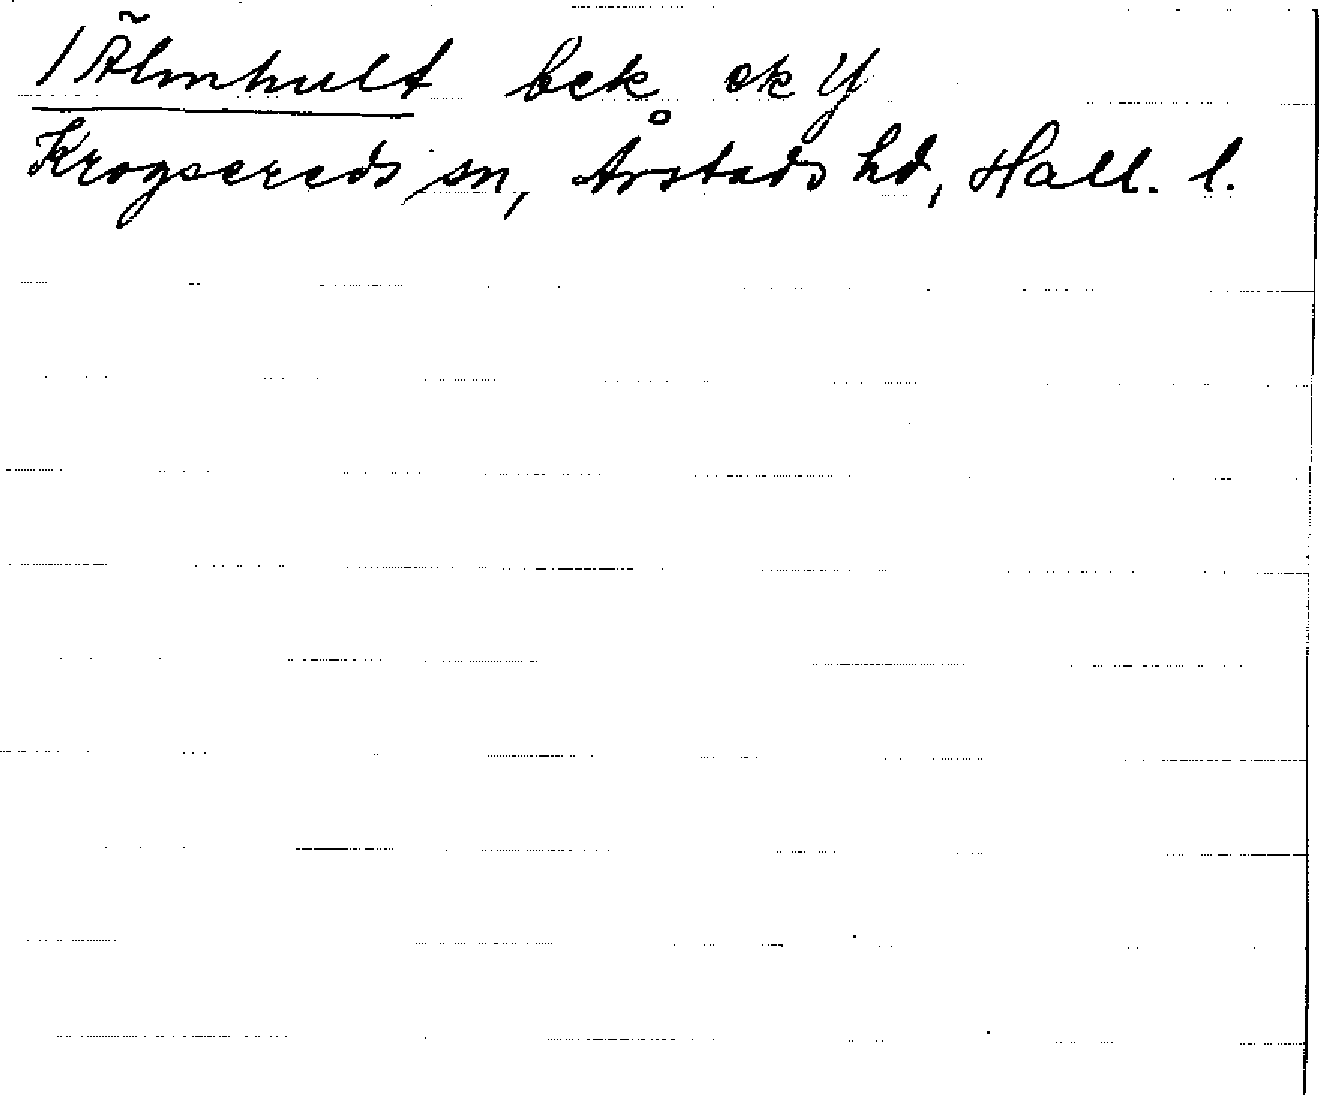 / Älmhult bek ek Y
Krogsereds sn, Årstads hd, Hall. l.